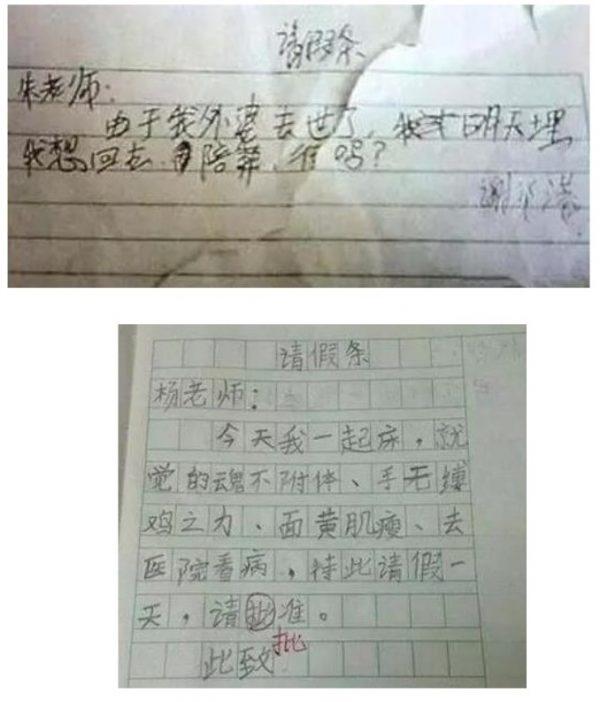 请假条
朱老师:
由于我外婆去世了,我明天埋
我想回去陪葬,行吗?
请假条
杨老师:
今天我一起床,就
觉的魂不附体、手无缚
鸡之力、面黄肌瘦、去
医院看病,特此请假一
天,请批准。
此致
批